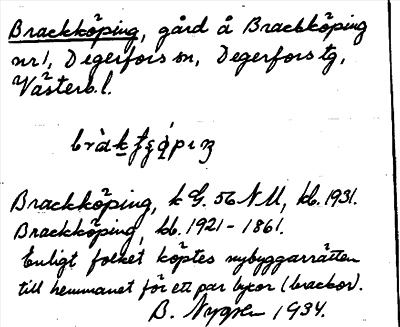 Brackköping, gård å Brackköping
nr 1, Degerfors sn, Degerfors tg,
Västerb. l.
Brackköping, k G. 56 NU, kb. 1931.
Brackköping, kb. 1921-1861.
Enligt folket köptes nybyggarrätten
till hemmanet för ett par byxor (brackor).
B. Nygren 1934.